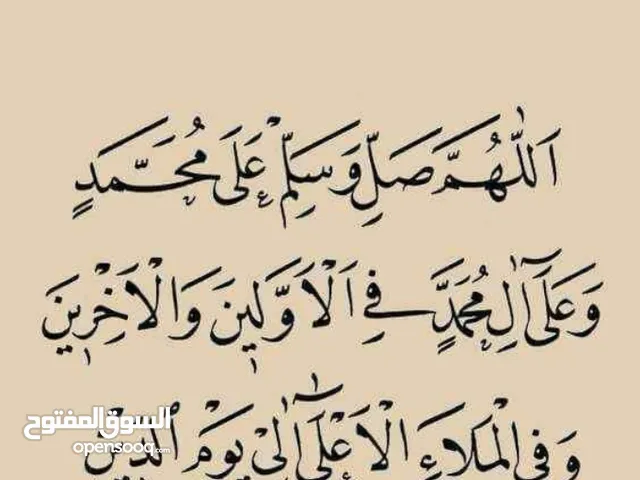 اَللّٰهُمَّ صَلِّ وَسَلِّمْ عَلَى مُحَمَّدٍ
وَعَلَى آلِ مُحَمَّدٍ فِي الْاَوَّلِينَ وَالْاٰخِرِينَ
وَفِي الْمَلَاءِ الْاَعْلَى اِلٰى يَوْمِ الدِّينِ
السوق المفتوح
opensooq.com